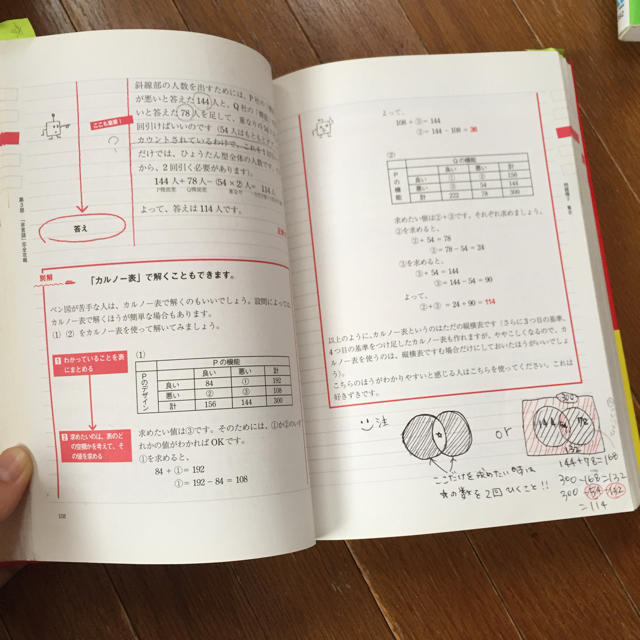 斜線部の人数を出すためには、P社の
が悪いと答えた144人と、Q社の「機能
いと答えた78人を足して、重なりの54
回引けばいいのです(54人はもともと
カウントされているわけで、これを1回
だけでは、ひょうたん型全体の人数で
から、2回引く必要があります)。
144人+78人-(54×2)人= 114人
P機能悪 Q機能悪 重なり
よって、答えは114人です。
ここも重要!
答え
第3部 「非言語」完全攻略
別解
「カルノー表」で解くこともできます。
ベン図が苦手な人は、カルノー表で解くのもいいでしょう。設問によっては
カルノー表で解くほうが簡単な場合もあります。
(1)(2)をカルノー表を使って解いてみましょう。
1 わかっていることを表
にまとめる
(1)
Pの機能
Pのデザイン
良い 悪い 計
良い 84 ① 192
悪い ② ③ 108
計 156 144 300
2 求めたいのは、表のど
の空欄かを考えて、そ
の値を求める
求めたい値は③です。そのためには、①か②のいず
れかの値がわかればOKです。
①を求めると、
84+①=192
①=192-84=108
102
よって、
108+③=144
③=144-108=36
②
Qの機能
Pの機能
良い 悪い 計
良い ① ② 156
悪い ③ 54 144
計 222 78 300
求めたい値は②+③です。それぞれ求めましょう。
②を求めると、
②+54=78
②=78-54=24
③を求めると、
③+54=144
③=144-54=90
よって、
②+③=24+90=114
以上のように、カルノー表というのはただの縦横表です(さらに3つ目の基準、
4つ目の基準をつけ足したカルノー表も作れますが、ややこしくなるので、カ
ルノー表を使うのは、縦横表ですむ場合だけにしておいたほうがいいでしょ
う)。
こちらのほうがわかりやすいと感じる人はこちらを使ってください。これは
好きずきです。
注
or
ここだけを求めたい時は
☆の数を2回ひくこと!!
300
144 54 78
132
144+78=168
300-168=132
300-54-132
=114